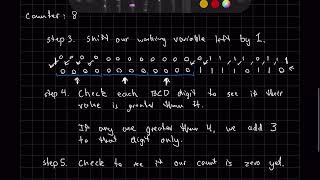 Counter: 8
step 3. Shift our working variable left by 1.
step 4. Check each BCD digit to see if their
value is greater than 4.
If any are greater than 4, we add 3
to that digit only.
step 5. Check to see if our count is zero yet.